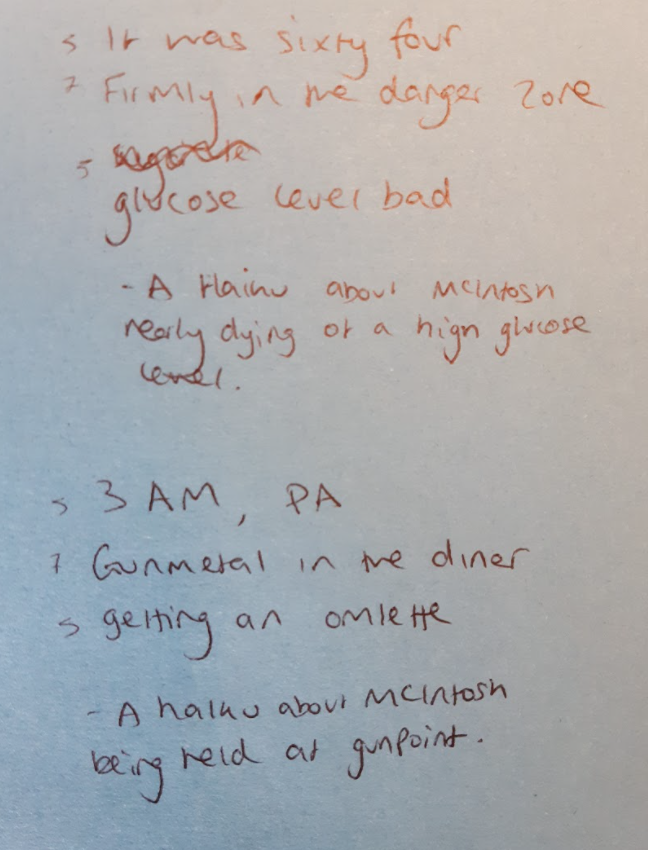 5 It was sixty four
7 Firmly in the danger zone
5
glucose level bad
- A Haiku about McIntosh
nearly dying of a high glucose
level.
5 3 AM, PA
7 Gunmetal in the diner
5 getting an omlette
- A haiku about McIntosh
being held at gunpoint.